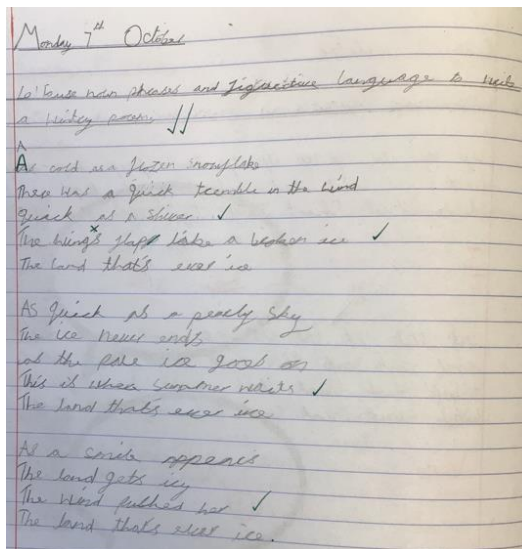 Monday 7th October
Lo: To use noun phrases and figurative language to write
a wintry poem
As cold as a frozen snowflake
There was a quick tremble in the wind
quick as a shiver
The wings flap like a broken ice
The land that's ever ice
As quick as a pearly sky
The ice never ends
as the pole ice goes on
This is when summer waits
The land that's ever ice
As a smile appears
The land gets icy
The wind pushed her
The land that's ever ice.